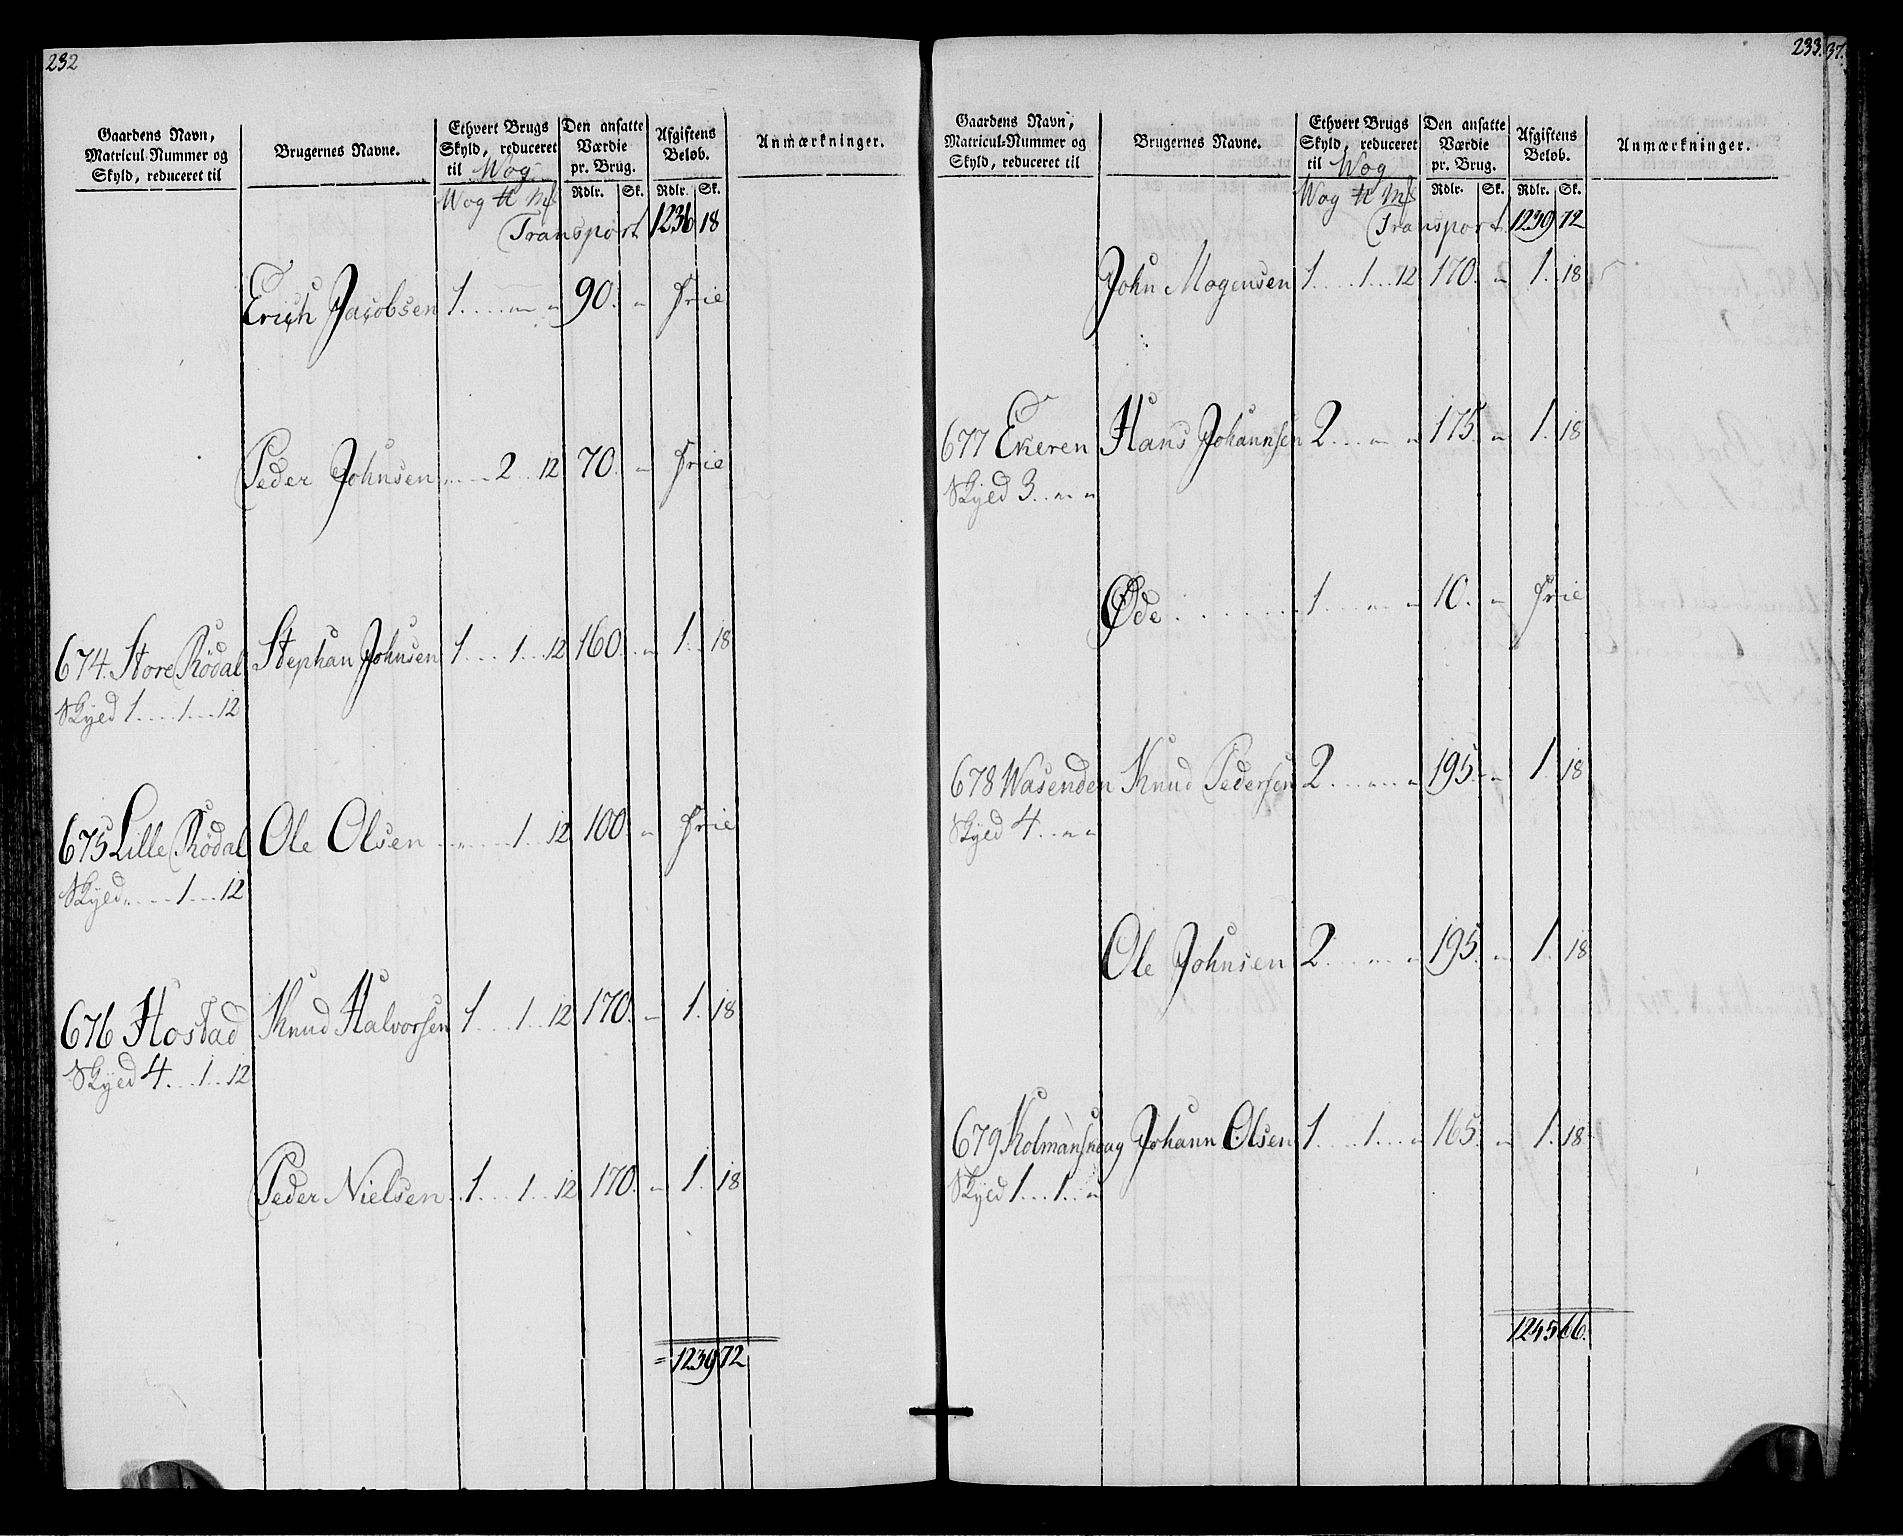 232
Gaardens Navn, Matricul-Nummer og Skyld, reduceret til
Brugernes Navne.
Ethvert Brugs Skyld, reduceret til Wog
Den ansatte Værdie pr. Brug.
Afgiftens Beløb.
Anmærkninger.
Wog ℔ Mk Rdlr. Sk. Rdlr. Sk.
Transport 1236 18
Erich Jacobsen 1 . . . . „ „ 90. „ frie
Peder Johnsen . . . . 2 . . 12 70. „ frie
674. Store Rödal Stephan Johnsen 1 . . . . 1 . . . 12 160. „ 1. . 18
Skyld 1 . . . . 1 . . . 12
675 Lille Rödal Ole Olsen . . „ . . . . 1 . . . 12 100. „ frie
Skyld „ . . . . 1 . . . 12
676 Hostad Knud Halvorsen 1 . . . . 1 . . 12 170. „ 1. 18
Skyld 4 . . . 1 . . 12
Peder Nielsen . . 1 . . . . 1 . . 12 170. „ 1. 18
= 1239 72
233.
37.
Gaardens Navn, Matricul-Nummer og Skyld, reduceret til
Brugernes Navne.
Ethvert Brugs Skyld, reduceret til Wog
Den ansatte Værdie pr. Brug.
Afgiftens Beløb.
Anmærkninger.
Wog ℔ Mk Rdlr. Sk. Rdlr. Sk.
Transport 1239 72
John Mogensen 1 . . . . 1 . . . 12 170. „ 1. 18
677 Ekeren Hans Johannsen 2 . . . „ „ 175. „ 1. 18
Skyld 3 . . „ „
Øde . . . . . . . 1 . . . . „ „ 10. „ frie
678 Wasenden Knud Pedersen 2 . . . „ „ 195. „ 1. 18
Skyld 4 . . „ „
Ole Johnsen 2 . . . „ „ 195. „ 1. 18
679 Kolmansnaag Johann Olsen 1 . . . . 1 . . . „ 165. „ 1. 18
Skyld 1 . . . 1 . . „
1245 66.